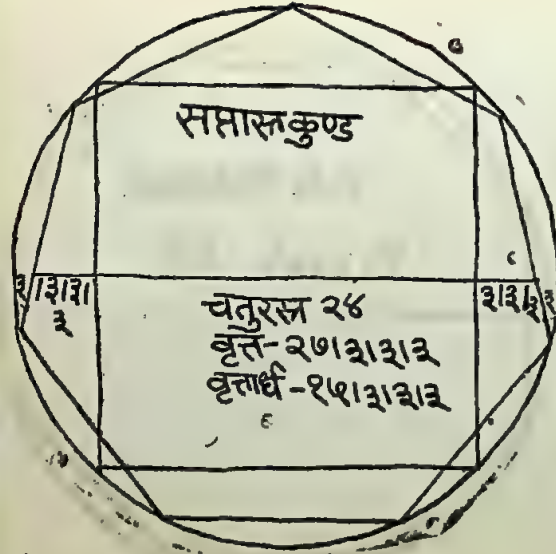 सप्तास्रकुण्ड
३।३।३।३
३
३।३।३।३
चतुरस्र २४
वृत्त-२७।३।३।३
वृत्तार्ध-१५।३।३।३